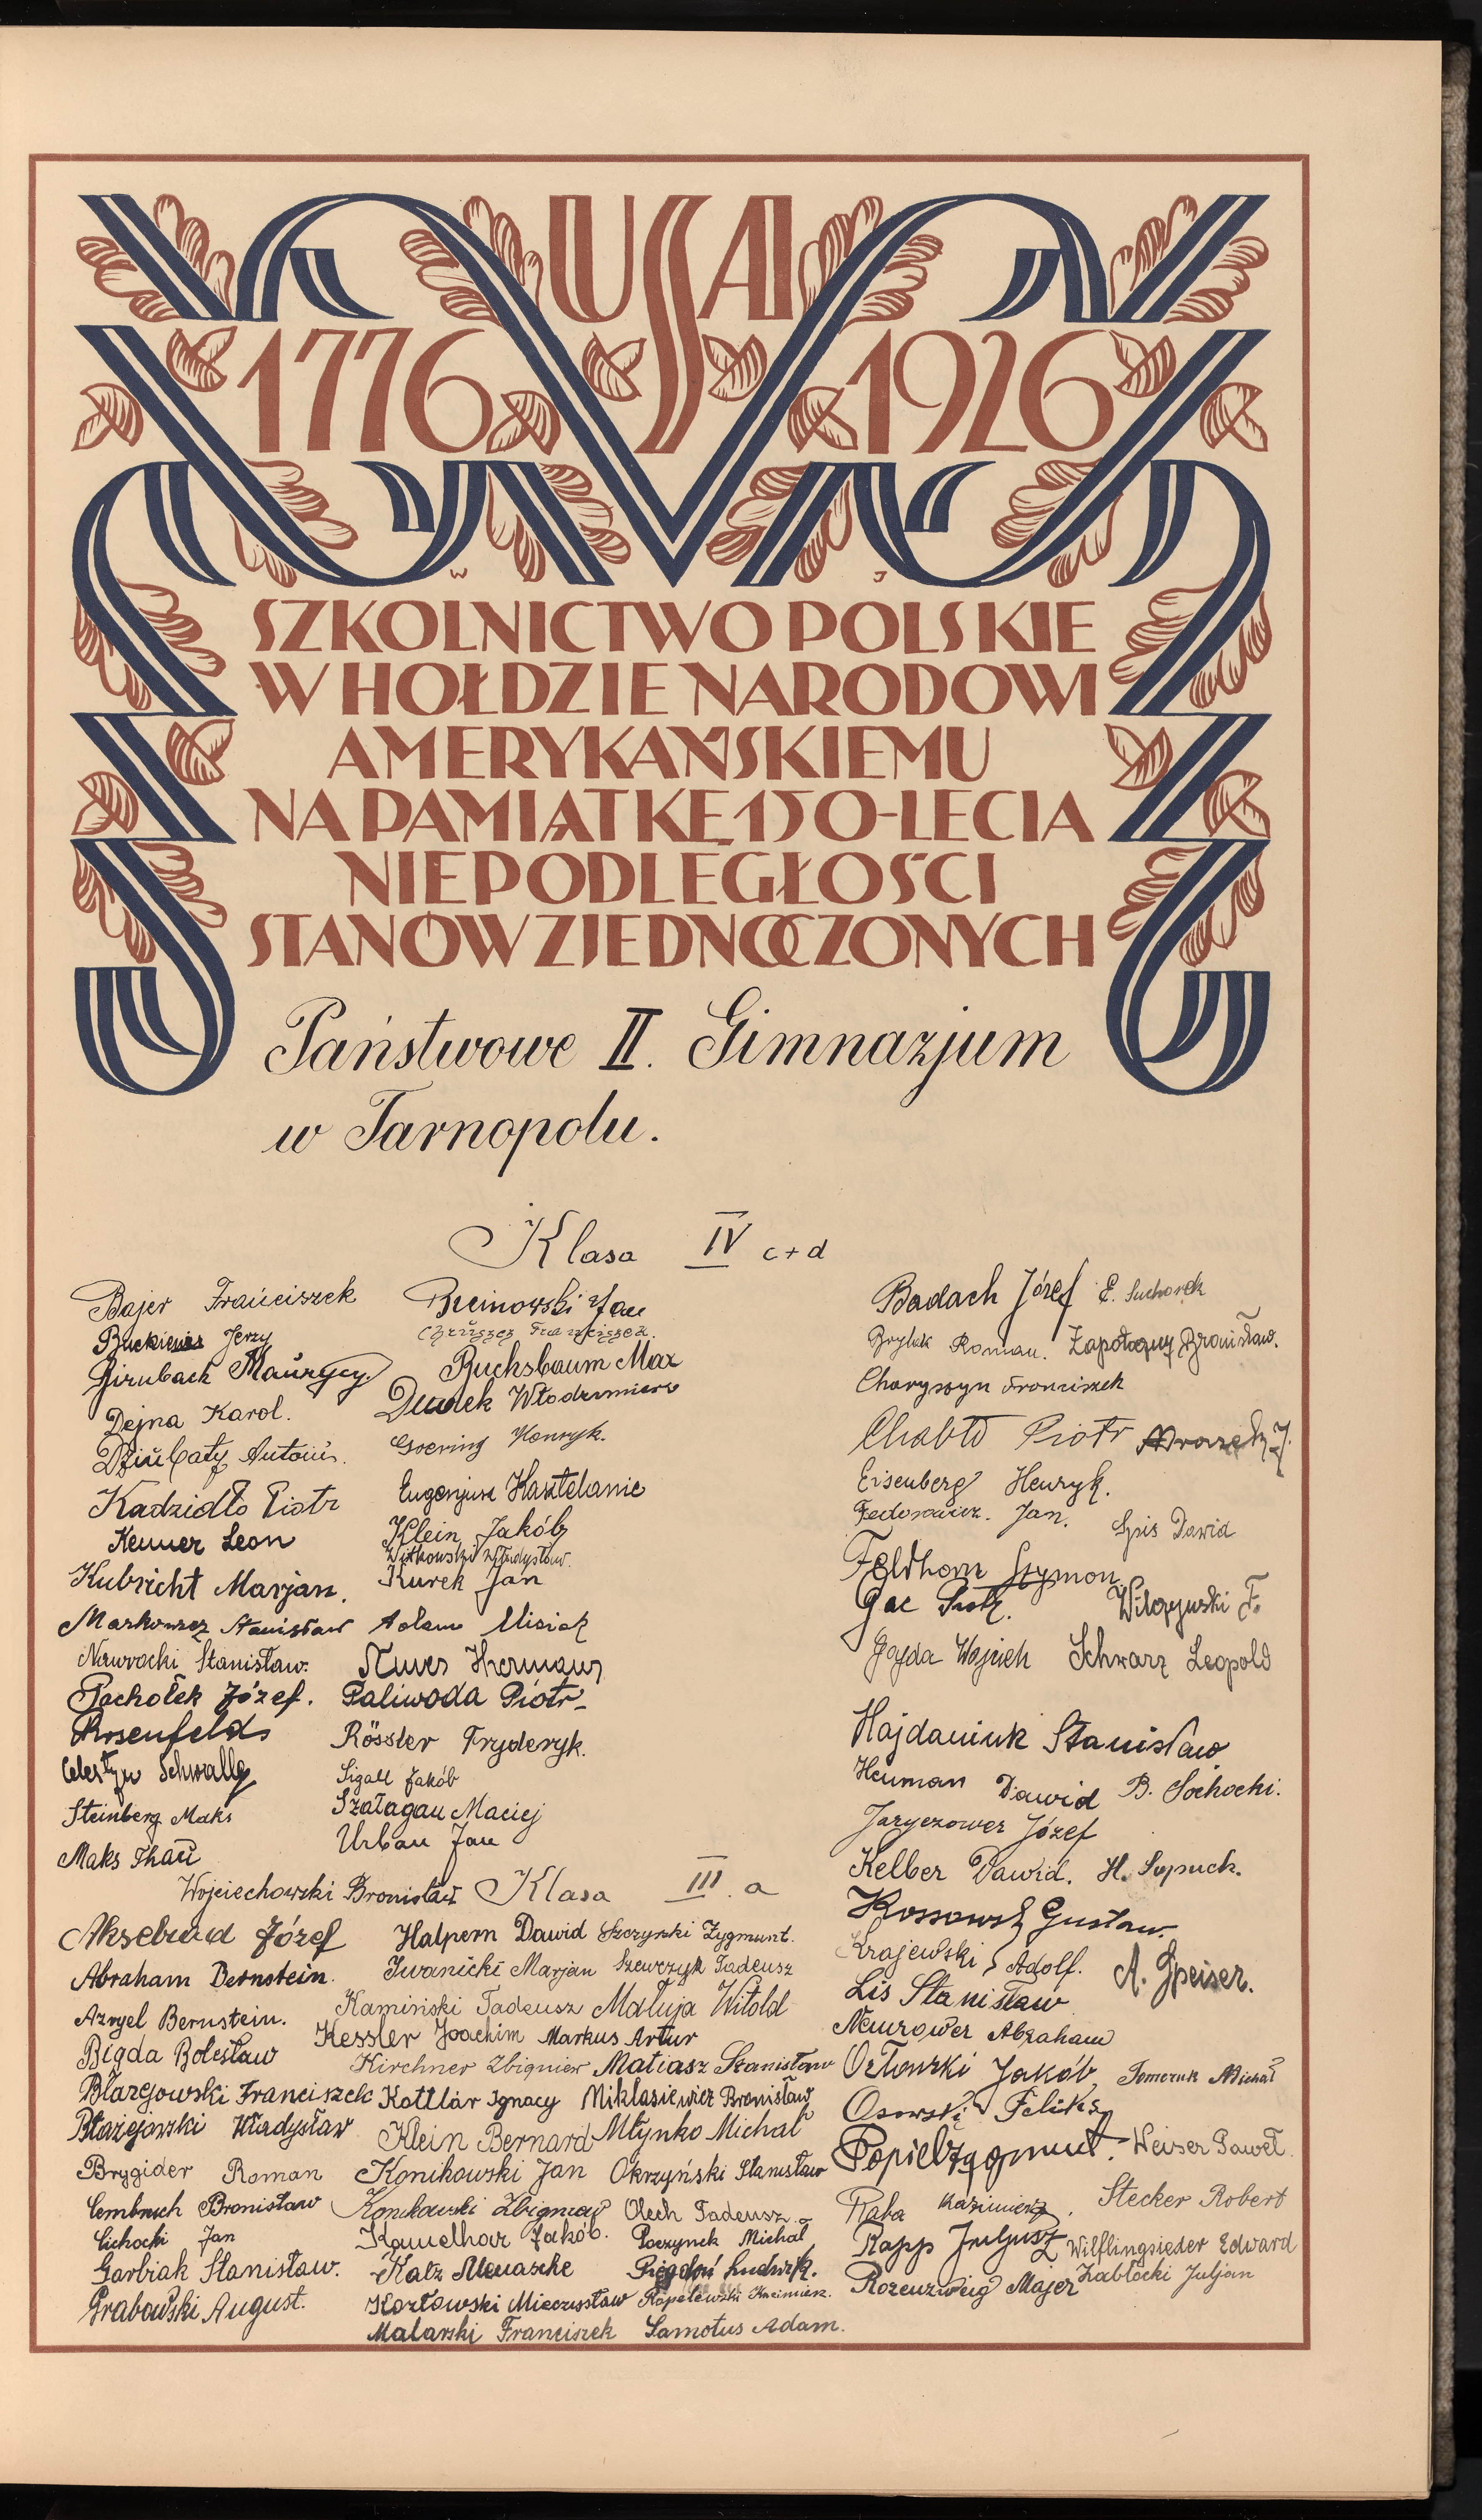 USA
1776 1926
W J
SZKOLNICTWO POLSKIE
W HOŁDZIE NARODOWI
AMERYKAŃSKIEMU
NA PAMIĄTKĘ 150-LECIA
NIEPODLEGŁOŚCI
STANÓW ZJEDNOCZONYCH
Państwowe II. Gimnazjum
w Tarnopolu.
Klasa IV c+d
Bajer Franciszek
Jerzy
Birnbach Maurycy.
Dejna Karol.
Dziubaty Antoni.
Kadzidło Piotr
Kenner Leon
Kubricht Marjan.
Markowicz Stanisław
Nawrocki Stanisław.
Pachołek Józef.
Rosenfeld
Celestyn Schwally
Steinberg Maks
Maks Thau
Wojciechowski Bronisław
Bucinowski Jan
Chruszcz Franciszek.
Buchsbaum Max
Dudek Włodzimierz
Goering Henryk.
Eugenjusz Kasztelanic
Klein Jakób
Witkowski Władysław.
Kurek Jan
Adam Misiak
Hermann
Paliwoda Piotr
Rössler Fryderyk.
Sigall Jakób
Szałagan Maciej
Urban Jan
Badach Józef E. Suchorek
Brylak Roman. Zapotoczny Bronisław.
Charyszyn Franciszek
Chabło Piotr Mrozek J.
Eisenberg Henryk.
Fedorowicz. Jan. Spis Dawid
Feldhorn Szymon
Gac Piotr. Wilczyński F.
Gajda Wojciech Schwarz Leopold
Hajdaniuk Stanisław
Heuman Dawid B. Sochocki.
Jaryczower Józef
Kelber Dawid. H. Supruk.
Kossowski Gustaw.
Krajewski Adolf. A. Speiser.
Lis Stanisław
Neurower Abraham
Orłowski Jakób Tomczuk Michał
Osowski Feliks
Popiel Zygmunt. Weiser Paweł.
Raba Kazimierz. Stecker Robert
Rapp Juljusz Wilflingseder Edward
Rozenzweig Majer Zabłocki Juljan
Klasa III. a
Akselrad Józef
Abraham Bernstein.
Azryel Bernstein.
Bigda Bolesław
Błażejowski Franciszek
Błażejowski Władysław
Brygider Roman
Cembruch Bronisław
Cichocki Jan
Garbiak Stanisław.
Grabowski August.
Halpern Dawid
Iwanicki Marjan
Kamiński Tadeusz
Kessler Joachim
Kirchner Zbigniew
Kottlár Ignacy
Klein Bernard
Konikowski Jan
Konikowski Zbigniew
Kamelhar Jakób.
Katz Menasche
Kozłowski Mieczysław
Malarski Franciszek
Szczyrski Zygmunt.
Szewczyk Tadeusz
Matuja Witold
Markus Artur
Matiasz Stanisław
Miklasiewicz Bronisław
Młynko Michał
Okrzyński Stanisław
Olech Tadeusz
Poczynek Michał
Pigdoń Ludwik.
Rapelewski Kazimierz.
Samotus Adam.